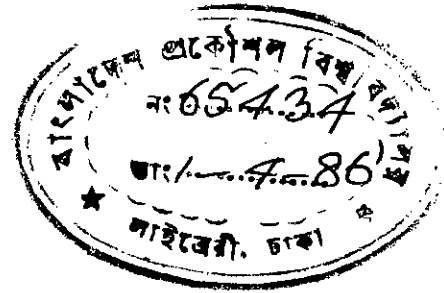 বাংলাদেশ প্রকৌশল বিশ্ববিদ্যালয়
নং 65434
তাং 1.4.86
★ লাইব্রেরী, ঢাকা